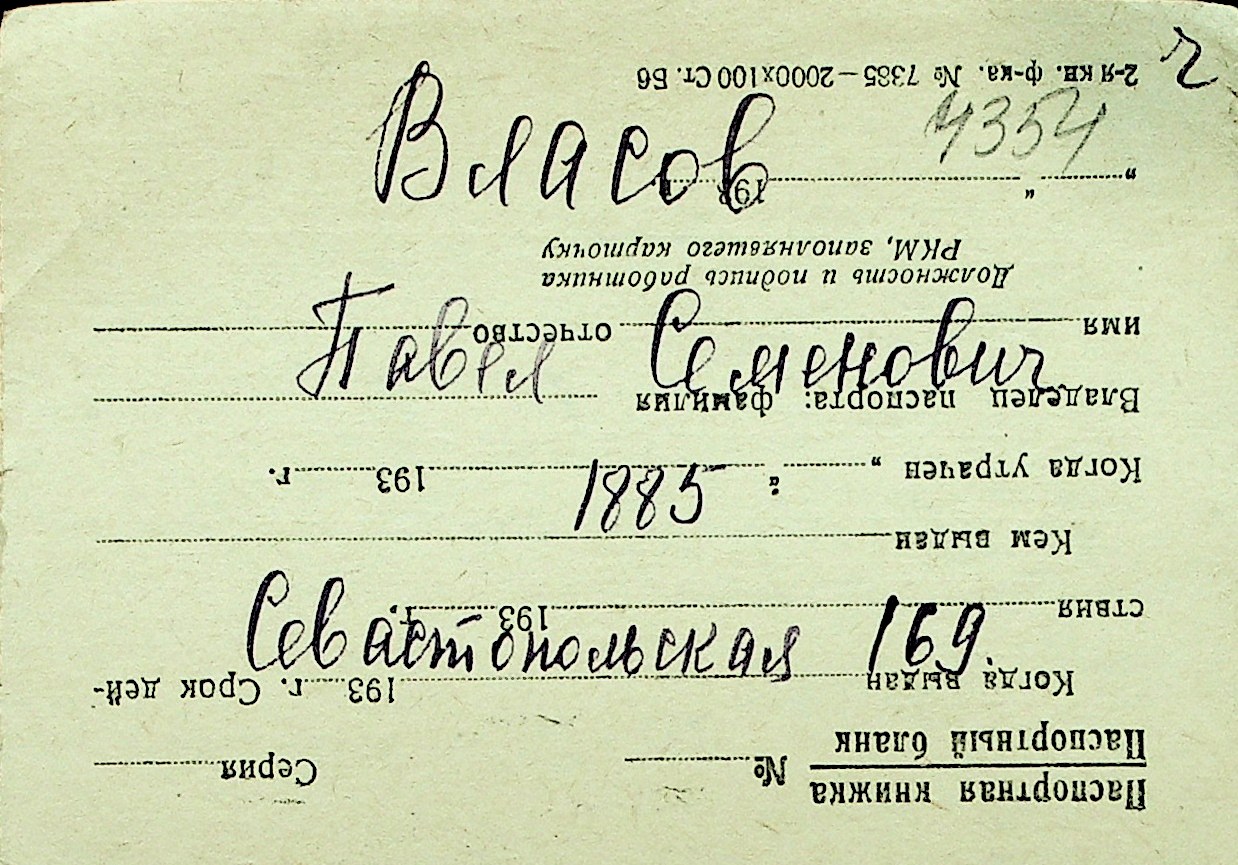 4354
Власов
Павел Семенович
1885
Севастопольская 169.
Паспортная книжка
Паспортный бланк № Серия
Когда выдан 193 г. Срок дей-
ствия 193 г.
Кем выдан
Когда утрачен „ “ 193 г.
Владелец паспорта: фамилия
имя отчество
Должность и подпись работника
РКМ, заполнявшего карточку
„ “ 193
2-я кв. ф-ка. № 7385—2000х100 Ст. Б6